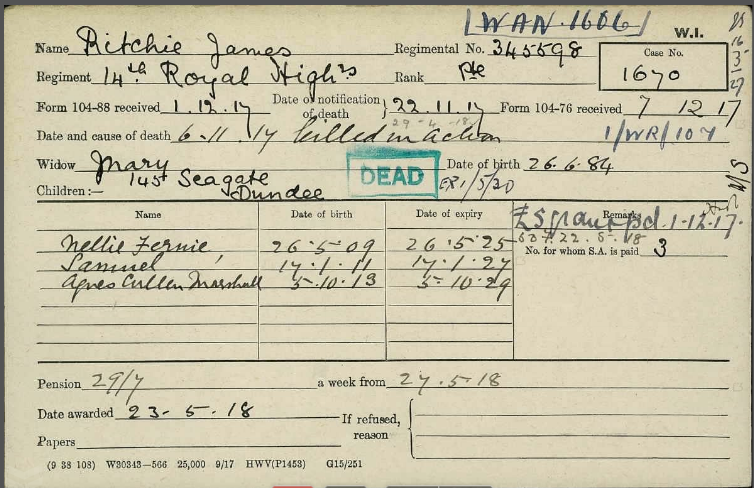 WAN.1606
W.I.
Name Ritchie James Regimental No. 345598 Case No.
Regiment 14th Royal High'rs Rank Pte 1670
Form 104-88 received 1.12.17 Date of notification of death } 22.11.17 Form 104-76 received 7 12 17
29-4-18
Date and cause of death 6-11.17 killed in action 1/WR/107
Widow Mary DEAD Date of birth 26.6.84
145 Seagate Ex. 1/5/20
Children:— Dundee
Name Date of birth Date of expiry Remarks
£5 grant pd. 1-12-17.
Nellie Fernie 26-5-09 26-5-25
Samuel 17.1.11 17.1.27 No. for whom S.A. is paid 3
Agnes Cullen Marshall 5-10.13 5-10.29
Pension 29/7 a week from 27.5.18
Date awarded 23-5.18 If refused, reason
Papers
(9 38 108) W30343—566 25,000 9/17 HWV(P1453) G15/251